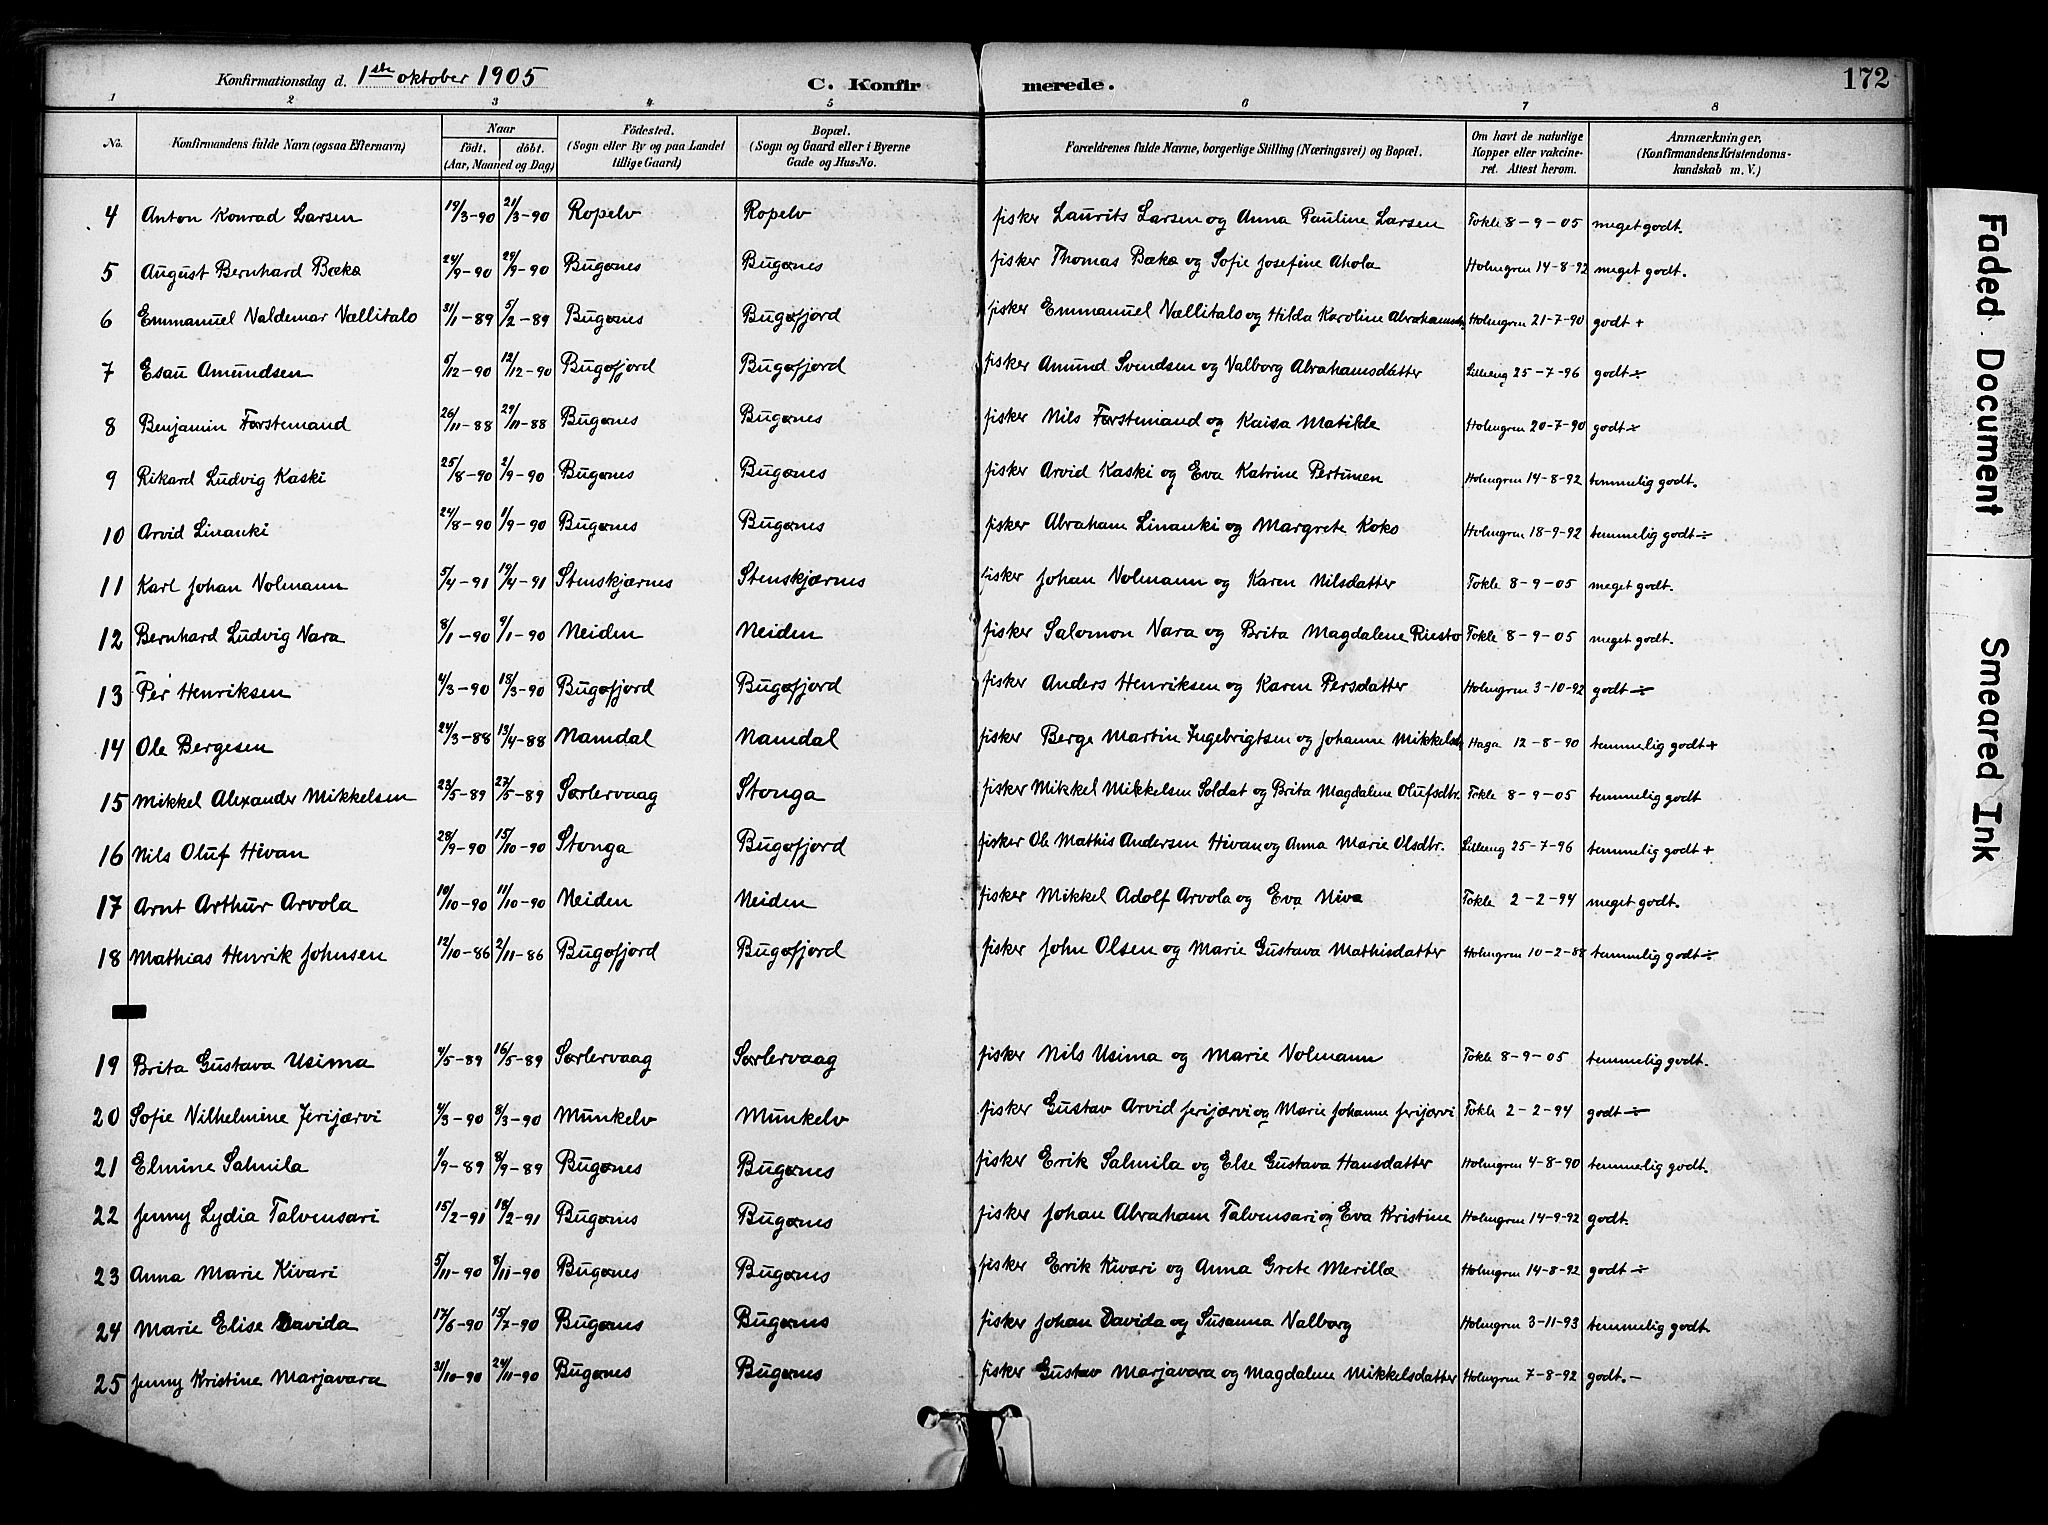 Konfirmationsdag d. 1ste oktober 1905 C. Konfirmerede. 172
1 2 3 4 5 6 7 8
No. Konfirmandens fulde Navn (ogsaa Efternavn) Naar födt. döbt. (Aar, Maaned og Dag) Födested. (Sogn eller By og paa Landet tillige Gaard) Bopæl. (Sogn og Gaard eller i Byerne Gade og Hus-No. Forældrenes fulde Navne, borgerlige Stilling (Næringsvei) og Bopæl. Om havt de naturlige Kopper eller vakcineret. Attest herom. Anmærkninger, (Konfirmandens Kristendomskundskab m. V.)
4 Anton Konrad Larsen 19/3-90 21/3-90 Ropelv Ropelv fisker Laurits Larsen og Anna Pauline Larsen Tokle 8-9-05 meget godt.
5 August Bernhard Bækæ 24/9-90 29/9-90 Bugønes Bugønes fisker Thomas Bækæ og Sofie Josefine Ahola Holmgren 14-8-92 meget godt.
6 Emmanuel Valdemar Vællitalo 31/1-89 5/2-89 Bugønes Bugøfjord fisker Emmanuel Vællitalo og Hilda Karoline Holmgren 21-7-90 godt +
7 Esau Amundsen 6/12-90 12/12-90 Bugøfjord Bugøfjord fisker Amund Svendsen og Valborg Abrahamsdatter Lilleeng 25-7-96 godt ÷
8 Benjamin Førstemand 26/11-88 29/11-88 Bugønes Bugønes fisker Nils Førstemand og Kaisa Matilde Holmgren 20-7-90 godt ÷
9 Rikard Ludvig Kaski 25/8-90 2/9-90 Bugønes Bugønes fisker Arvid Kaski og Eva Katrine Pertunen Holmgren 14-8-92 temmelig godt.
10 Arvid Linanki 24/8-90 1/9-90 Bugønes Bugønes fisker Abraham Linanki og Margrete Koko Holmgren 18-9-92 temmelig godt ÷
11 Karl Johan Volmann 5/4-91 19/4-91 Stenskjærnes Stenskjærnes fisker Johan Volmann og Karen Nilsdatter Tokle 8-9-05 meget godt.
12 Bernhard Ludvig Vara 8/1-90 9/1-90 Neiden Neiden fisker Salomon Vara og Brita Magdalene Riesto Tokle 8-9-05 meget godt.
13 Per Henriksen 4/3-90 18/3-90 Bugøfjord Bugøfjord fisker Anders Henriksen og Karen Persdatter Holmgren 3-10-92 godt ÷
14 Ole Bergesen 24/3-88 13/4-88 Namdal Namdal fisker Berge Martin Ingebrigtsen og Johanne Haga 12-8-90 temmelig godt +
15 Mikkel Alexander Mikkelsen 23/5-89 27/5-89 Sørlervaag Stonga fisker Mikkel Mikkelsen Soldat og Brita Magdalene Olufsdtr. Tokle 8-9-05 temmelig godt
16 Nils Oluf Hivan 28/9-90 15/10-90 Stonga Bugøfjord fisker Ole Mathis Andersen Hivan og Anna Marie Olsdtr. Lilleeng 25-7-96 temmelig godt +
17 Arnt Arthur Arvola 10/10-90 11/10-90 Neiden Neiden fisker Mikkel Adolf Arvola og Eva Niva Tokle 2-2-94 meget godt.
18 Mathias Henrik Johnsen 12/10-86 2/11-86 Bugøfjord Bugøfjord fisker John Olsen og Marie Gustava Mathisdatter Holmgren 10-2-88 temmelig godt ÷
19 Brita Gustava Usima 4/5-89 16/5-89 Sørlervaag Sørlervaag fisker Nils Usima og Marie Volmann Tokle 8-9-05 temmelig godt.
20 Sofie Vilhelmine Jerijærvi 4/3-90 8/3-90 Munkelv Munkelv fisker Gustav Arvid Jerijærvi og Marie Johanne Jerijærvi Tokle 2-2-94 godt ÷
21 Elmine Salmila 1/9-89 8/9-89 Bugønes Bugønes fisker Erik Salmila og Else Gustava Hansdatter Holmgren 4-8-90 temmerlig godt.
22 Jenny Lydia Talvensari 15/2-91 18/2-91 Bugønes Bugønes fisker Johan Abraham Talvensari og Eva Kristine Holmgren 14-9-92 godt.
23 Anna Marie Kivari 5/11-90 8/11-90 Bugønes Bugønes fisker Erik Kivari og Anna Grete Merillæ Holmgren 14-8-92 godt ÷
24 Marie Elise Davida 17/6-90 15/7-90 Bugønes Bugønes fisker Johan Davida og Susanna Valborg Holmgren 3-11-93 temmelig godt.
25 Jenny Kristine Marjavara 31/10-90 24/11-90 Bugønes Bugønes fisker Gustav Marjavara og Magdalene Mikkelsdatter Holmgren 7-8-92 godt. -
Faded Document
Smeared Ink